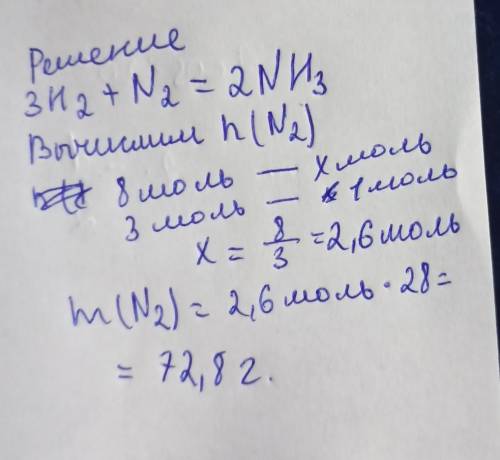 Решение
3H₂ + N₂ = 2NH₃
Вычислим n(N₂)
8 моль — x моль
3 моль — 1 моль
x = 8/3 = 2,6 моль
m(N₂) = 2,6 моль · 28 =
= 72,8 г.